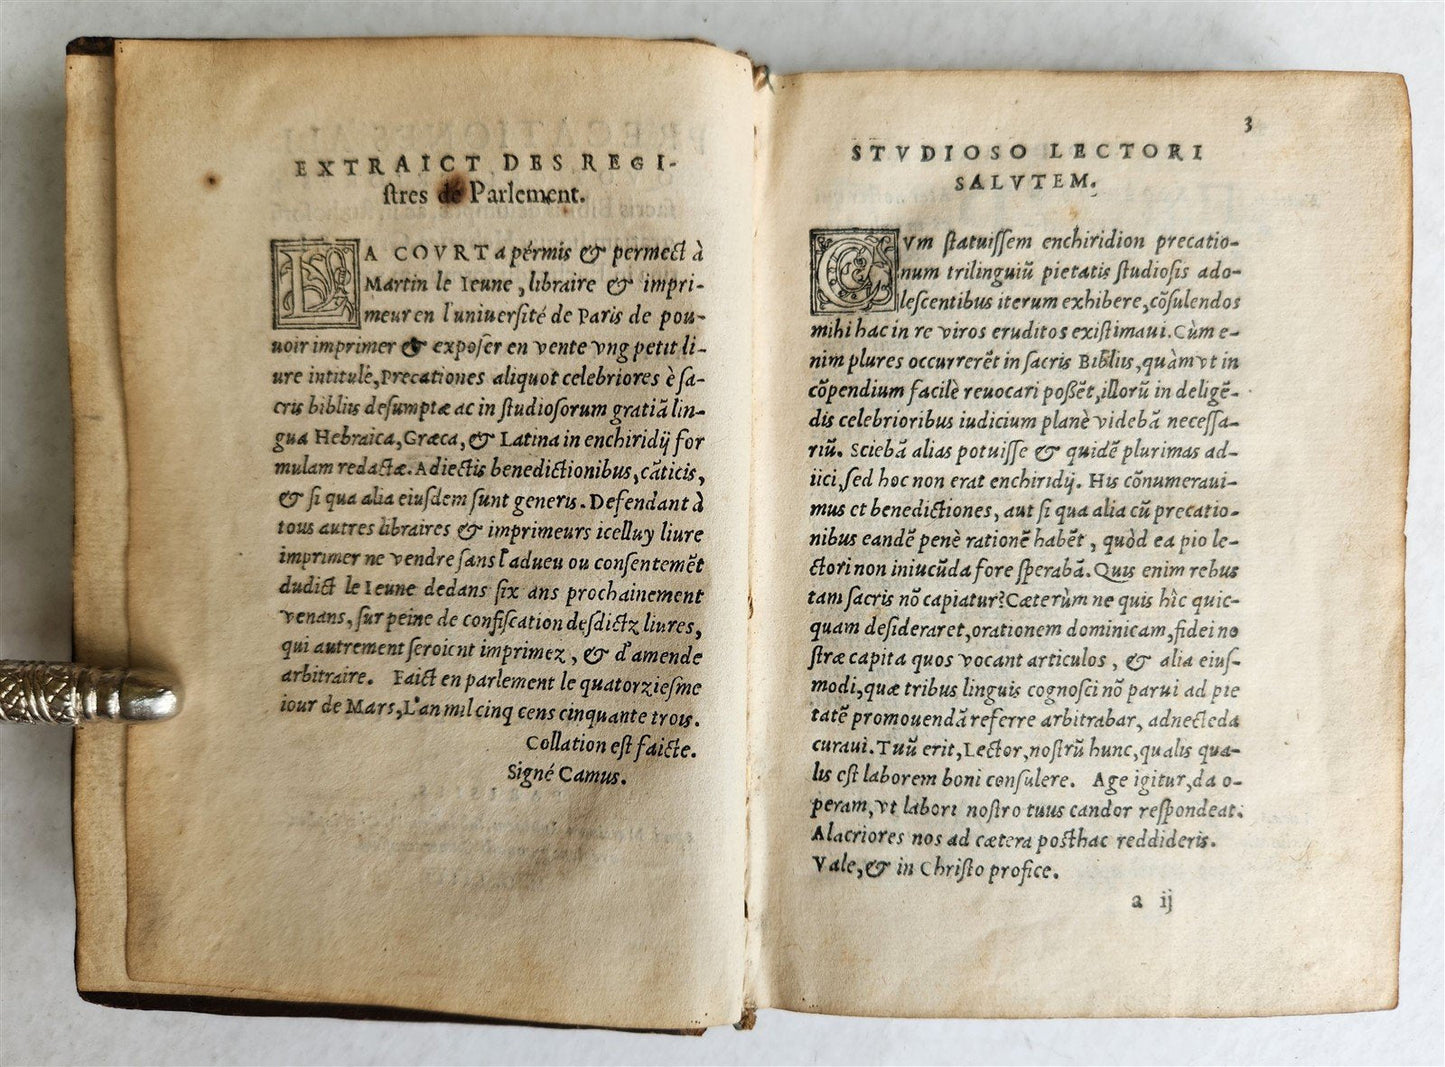 EXTRAICT DES REGI-
ſtres de Parlement.
LA COVRT a permis & permect à
Martin le Ieune, libraire & impri-
meur en l'uniuerſité de Paris de pou-
uoir imprimer & expoſer en vente vng petit li-
ure intitulè, Precationes aliquot celebriores è ſa-
cris bibliis deſumptæ ac in ſtudioſorum gratiã lin-
gua Hebraica, Græca, & Latina in enchiridij for
mulam redactæ. Adiectis benedictionibus, cãticis,
& ſi qua alia eiuſdem ſunt generis. Defendant à
tous autres libraires & imprimeurs icelluy liure
imprimer ne vendre ſans l'adueu ou conſentemẽt
dudict le Ieune dedans ſix ans prochainement
venans, ſur peine de confiſcation deſdictz liures,
qui autrement ſeroient imprimez, & d'amende
arbitraire. Faict en parlement le quatorzieſme
iour de Mars, L'an mil cinq cens cinquante trois.
Collation eſt faicte.
Signé Camus.
3
STVDIOSO LECTORI
SALVTEM.
CVm ſtatuiſſem enchiridion precatio-
num trilinguiũ pietatis ſtudioſis ado-
leſcentibus iterum exhibere, cõſulendos
mihi hac in re viros eruditos exiſtimaui. Cùm e-
nim plures occurrerẽt in ſacris Bibliis, quàm vt in
cõpendium facilè reuocari poßẽt, illorũ in deligẽ-
dis celebrioribus iudicium planè videbã neceſſa-
riũ. Sciebã alias potuiſſe & quidẽ plurimas ad-
iici, ſed hoc non erat enchiridij. His cõnumeraui-
mus et benedictiones, aut ſi qua alia cũ precatio-
nibus eandẽ penè rationẽ habẽt, quòd ea pio le-
ctori non iniucũda fore ſperabã. Quis enim rebus
tam ſacris nõ capiatur? Cæterùm ne quis hîc quic-
quam deſideraret, orationem dominicam, fidei no
ſtræ capita quos vocant articulos, & alia eiuſ-
modi, quæ tribus linguis cognoſci nõ parui ad pie
tatẽ promouendã referre arbitrabar, adnectẽda
curaui. Tuũ erit, Lector, noſtrũ hunc, qualis qua-
lis eſt laborem boni conſulere. Age igitur, da o-
peram, vt labori noſtro tuus candor reſpondeat.
Alacriores nos ad cætera poſthac reddideris.
Vale, & in Chriſto profice.
a ij